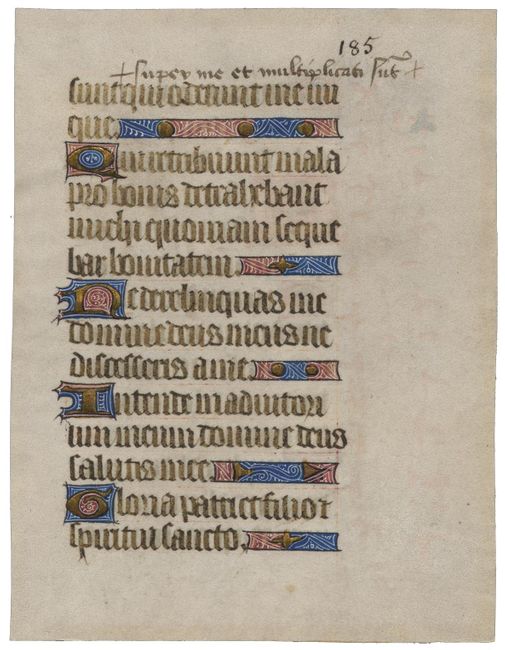 185
+ super me et multiplicati sūt +
sunt qui oderunt me ini
que
Qui retribuunt mala
pro bonis detrahebant
michi quoniam seque
bar bonitatem
Ne derelinquas me
domine deus meus ne
discesseris a me
Intende in adiutori
um meum domine deus
salutis mee
Gloria patri et filio et
spiritui sancto